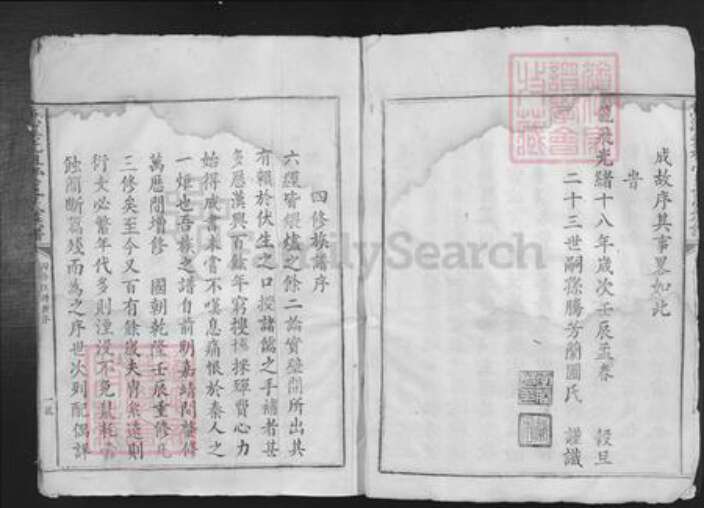 成故序其事畧如此
峕
龍飛光緒十八年歲次壬辰孟春 穀旦
二十三世嗣孫騰芳蘭圃氏 謹識
四修族譜序
六經皆煨燼之餘二論實壁間所出其
有賴於伏生之口授諸儒之手補者甚
多歷漢興百餘年窮搜博採殫費心力
始得成書未嘗不嘆息痛恨於秦人之
一炬也吾族之譜自前明嘉靖間創修
萬歷間增修 國朝乾隆壬辰重修凡
三修矣至今又百有餘歲夫冑系遠則
衍文必繁年代多則湮沒不免鼠耗
蝕簡斷篇殘而為之序世次列配偶詳
FamilySearch